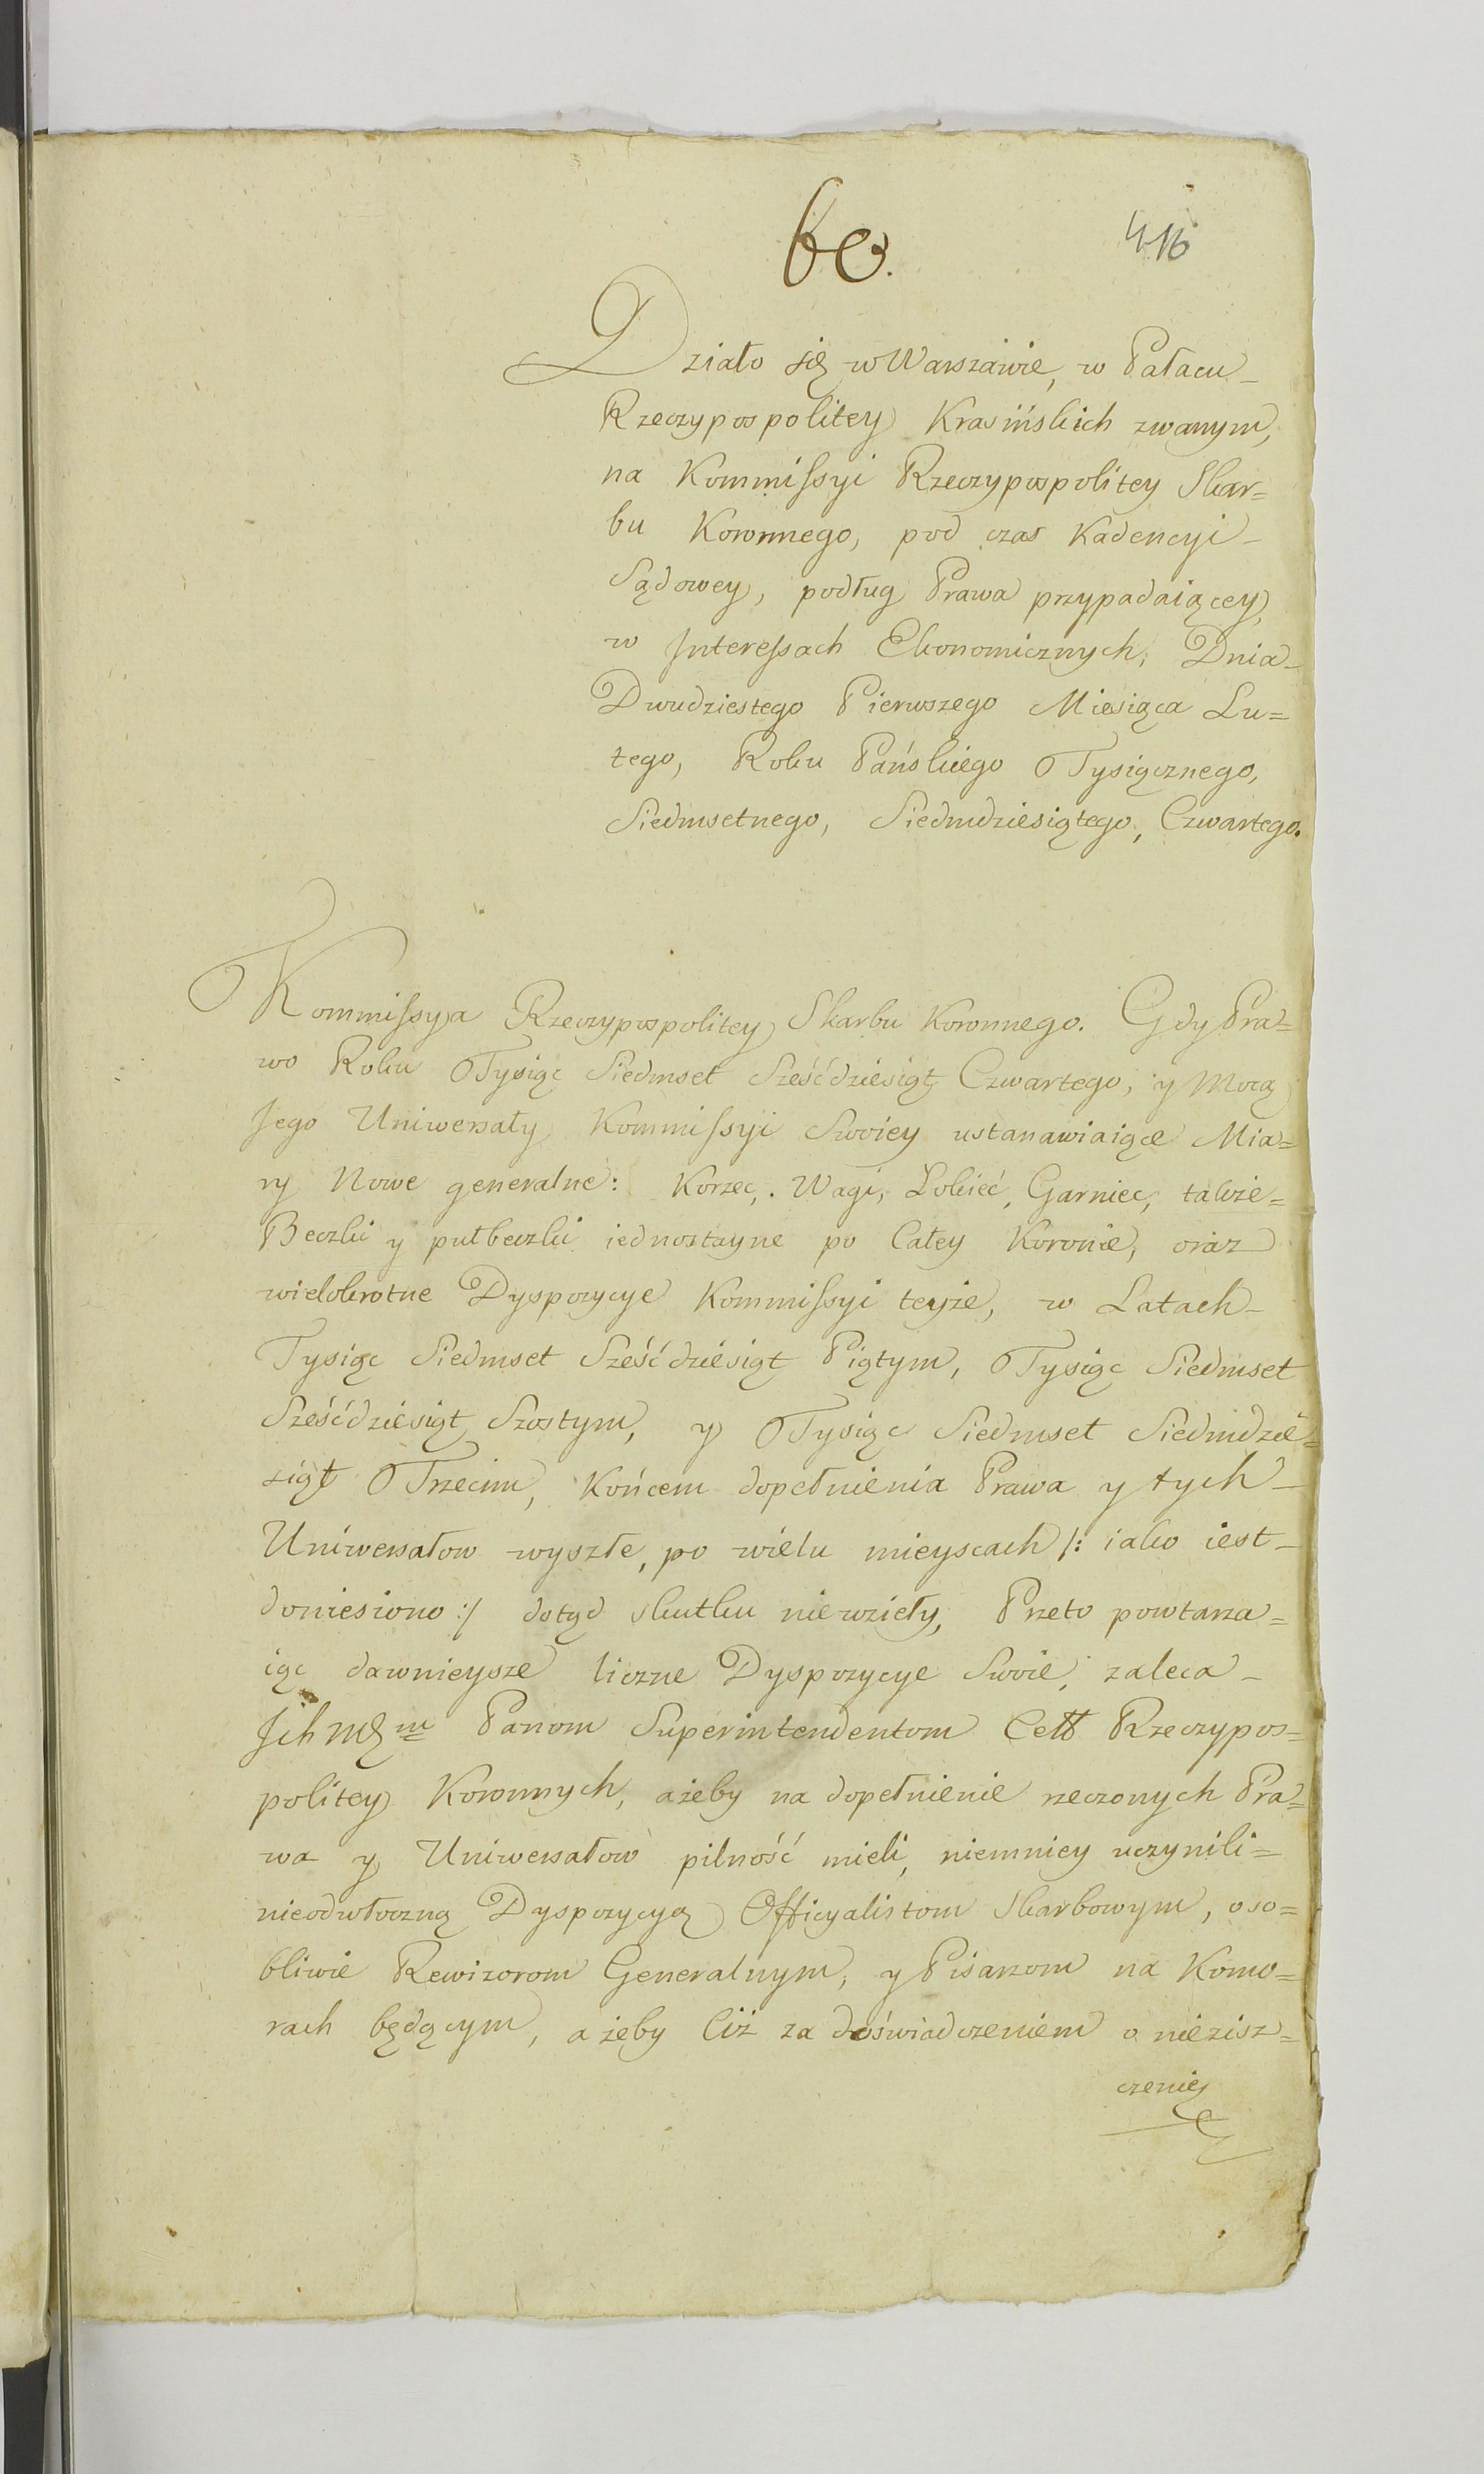 60.
416
Działo się w Warszawie, w Pałacu
Rzeczypospolitey Krasińskich zwanym,
na Kommissyi Rzeczypospolitey Skar=
bu Koronnego, pod czas Kadencyi
Sądowey, podług Prawa przypadaiącey,
w Interessach Ekonomicznych, Dnia
Dwudziestego Pierwszego Miesiąca Lu=
tego, Roku Pańskiego Tysiącznego,
Siedmsetnego, Siedmdziesiątego, Czwartego.
Kommissya Rzeczypospolitey Skarbu Koronnego. Gdy Pra=
wo Roku Tysiąc Siedmset Sześćdziesiąt Czwartego, y Mocą
Jego Uniwersały Kommissyi Swoiey ustanawiaiące Mia=
ry Nowe generalne: Korzec, Wagi, Łokieć, Garniec, także=
Beczki y pułbeczki iednostayne po Całey Koronie, oraz
wielokrotne Dyspozycye Kommissyi teyże, w Latach
Tysiąc Siedmset Sześćdziesiąt Piątym, Tysiąc Siedmset
Sześćdziesiąt Szostym, y Tysiąc Siedmset Siedmdzie=
siąt Trzecim, Końcem dopełnienia Prawa y tych
Uniwersałow wyszłe, po wielu mieyscach /: iako iest
doniesiono :/ dotąd skutku niewzieły, Przeto powtarza=
iąc dawnieysze liczne Dyspozycye Swoie, zaleca
Ich Mę͠m Panom Superintendentom Cełł Rzeczypos=
politey Koronnych, ażeby na dopełnienie rzeczonych Pra=
wa y Uniwersałow pilność mieli, niemniey uczynili=
nieodwłoczną Dyspozycyą Officyalistom Skarbowym, oso=
bliwie Rewizorom Generalnym, y Pisarzom na Komo=
rach będącym, ażeby Ciż za doświadczeniem o nieziszz=
czenię